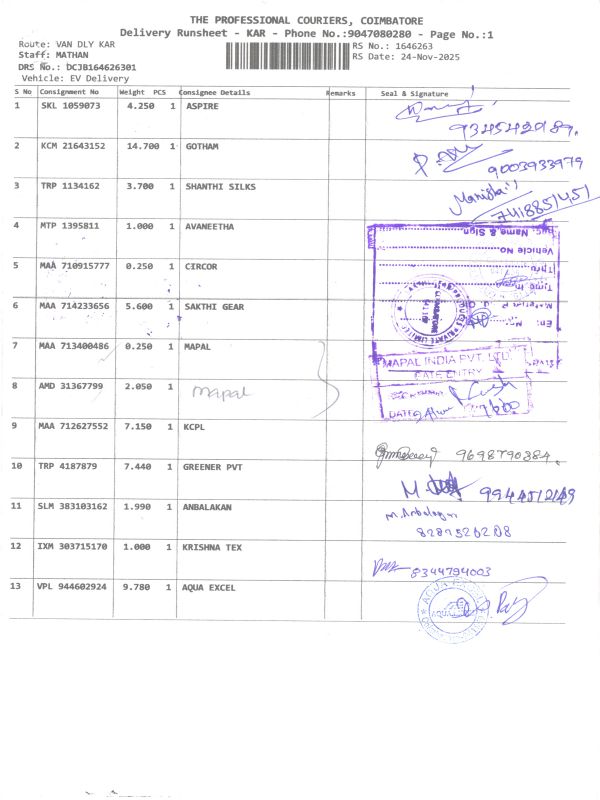 THE PROFESSIONAL COURIERS, COIMBATORE
Delivery Runsheet - KAR - Phone No.:9047080280 - Page No.:1
Route: VAN DLY KAR RS No.: 1646263
Staff: MATHAN RS Date: 24-Nov-2025
DRS No.: DCJB164626301
Vehicle: EV Delivery
S No Consignment No Weight PCS Consignee Details Remarks Seal & Signature
1 SKL 1059073 4.250 1 ASPIRE
2 KCM 21643152 14.700 1 GOTHAM
9003933979
3 TRP 1134162 3.700 1 SHANTHI SILKS
7418851451
4 MTP 1395811 1.000 1 AVANEETHA
Name & Sign
Vehicle No.
5 MAA 710915777 0.250 1 CIRCOR
Thru
Time In
6 MAA 714233656 5.600 1 SAKTHI GEAR
7 MAA 713400486 0.250 1 MAPAL
MAPAL INDIA PVT. LTD.
GATE ENTRY
8 AMD 31367799 2.050 1 mapal
DATE
9 MAA 712627552 7.150 1 KCPL
9698790384
10 TRP 4187879 7.440 1 GREENER PVT
11 SLM 383103162 1.990 1 ANBALAKAN
m. Anbalagan
12 IXM 303715170 1.000 1 KRISHNA TEX
8344794003
13 VPL 944602924 9.780 1 AQUA EXCEL